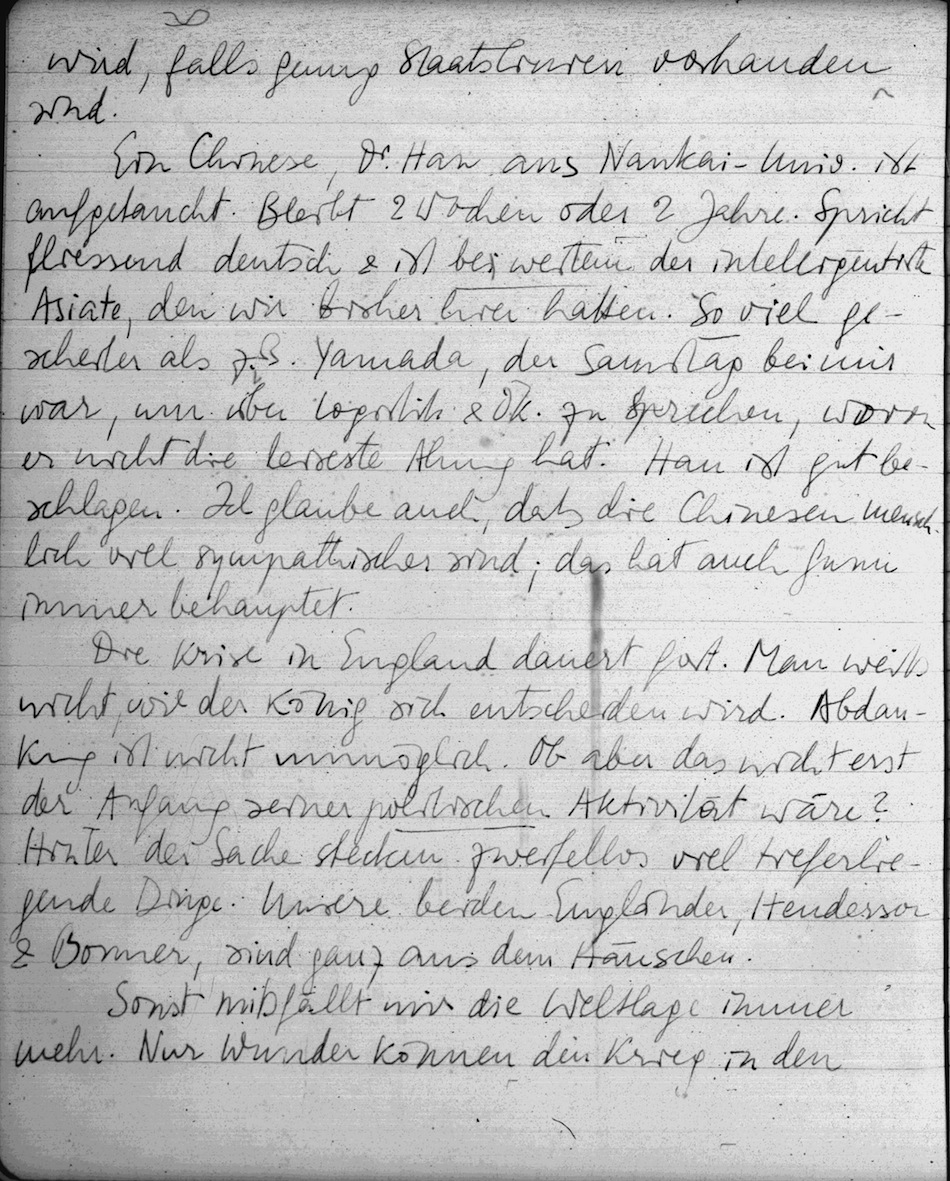 wird, falls genug Staatslimren vorhanden
sind.
Ein Chinese, Dr. Han aus Nankai-Univ. ist
aufgetaucht. Bleibt 2 Wochen oder 2 Jahre. Spricht
fliessend deutsch & ist bei weitem der intelligenteste
Asiate, den wir bisher hier hatten. So viel ge-
scheiter als z.B. Yamada, der Samstag bei mir
war, um über Logistik & Ök. zu sprechen, wovon
er nicht die leiseste Ahnung hat. Han ist gut be-
schlagen. Ich glaube auch, dass die Chinesen mensch-
lich viel sympathischer sind; das hat auch
immer behauptet.
Die Krise in England dauert fort. Man weiss
nicht, wie der König sich entscheiden wird. Abdan-
kung ist nicht unmöglich. Ob aber das nicht erst
der Anfang seiner politischen Aktivität wäre?
Hinter der Sache stecken zweifellos viel tieferlie-
gende Dinge. Unsere beiden Engländer, Henderson
& Bonner, sind ganz aus dem Häuschen.
Sonst mißfällt mir die Weltlage immer
mehr. Nur Wunder können den Krieg in den